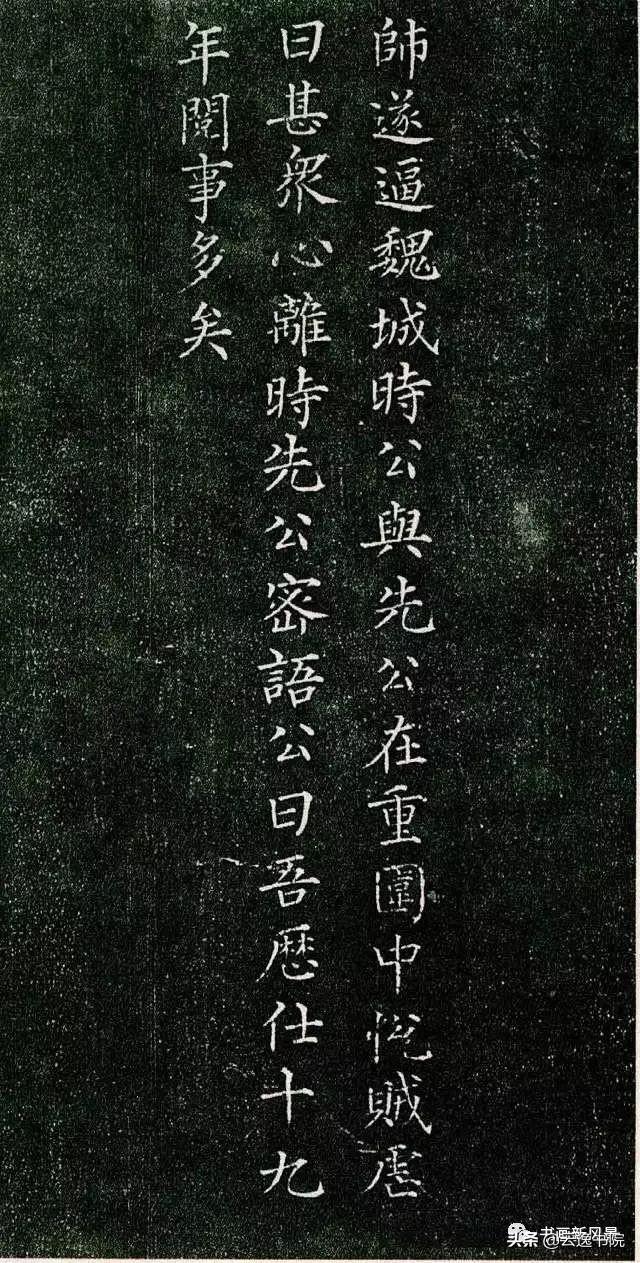 帥遂逼魏城時公與先公在重圍中悅賊虐
日甚衆心離時先公密語公曰吾歷仕十九
年閱事多矣
书画新风景
头条 @云逸书院